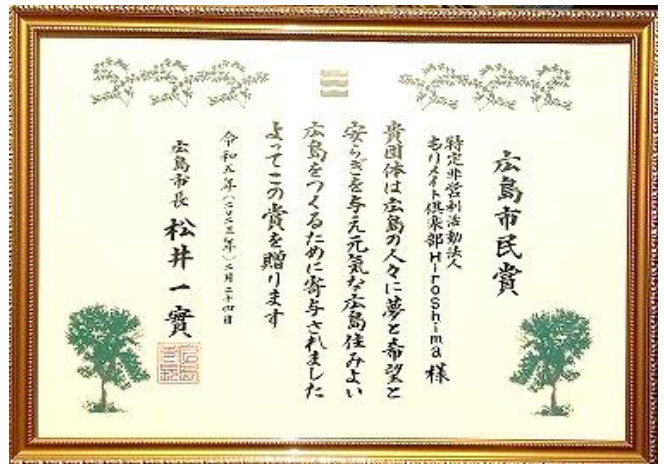 広島市民賞
特定非営利活動法人
もりメイト倶楽部Hiroshima 様
貴団体は広島の人々に夢と希望と
安らぎを与え元気な広島住みよい
広島をつくるために寄与されました
よってこの賞を贈ります
令和五年(二〇二三年)二月二十四日
広島市長 松井一實